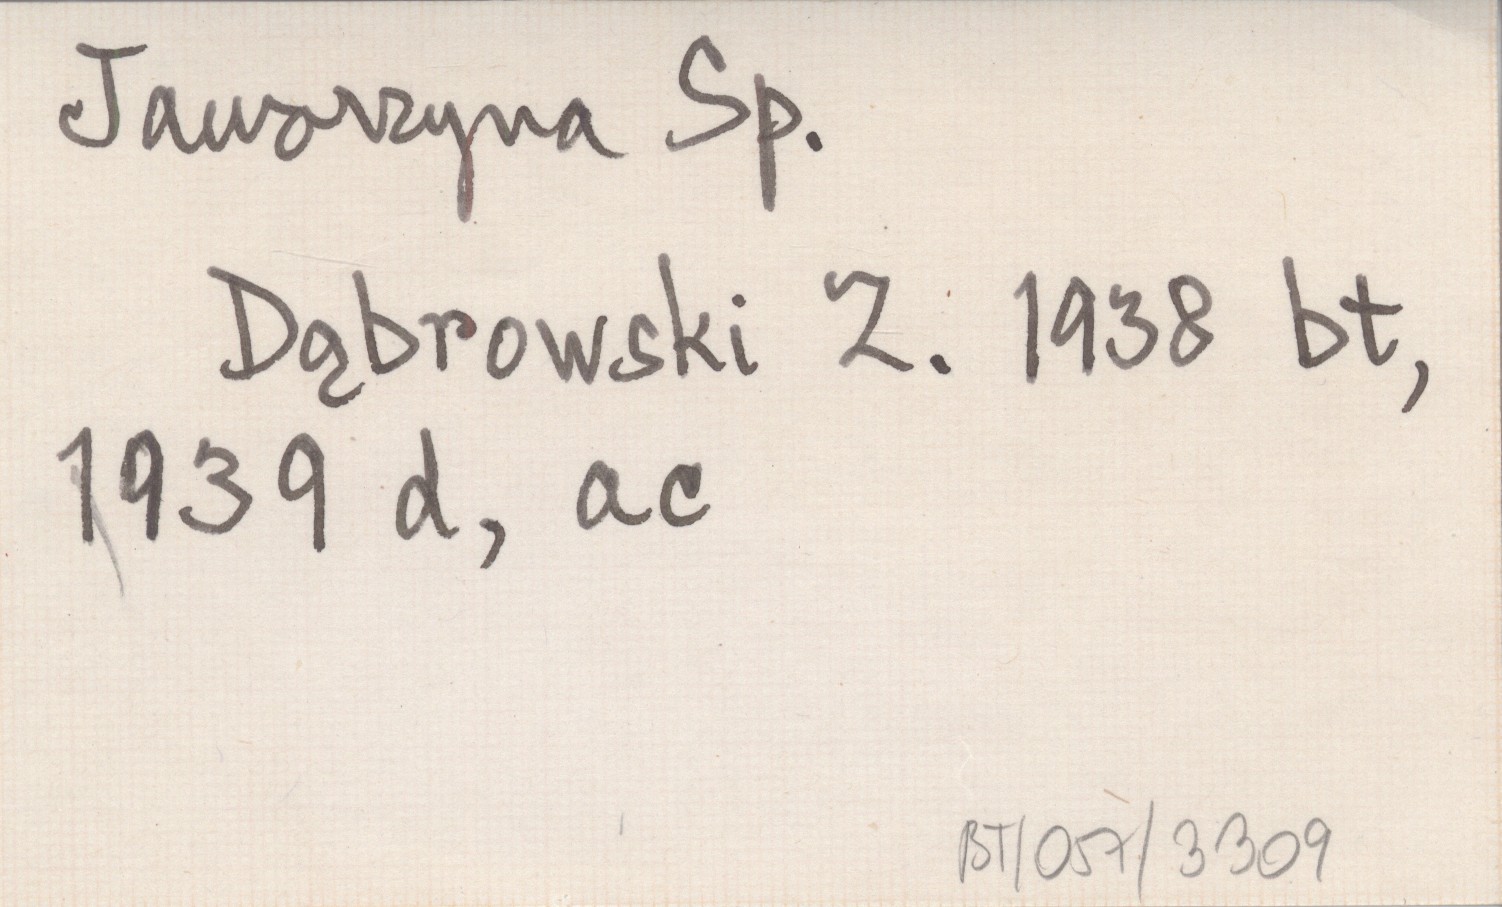 Jaworzyna Sp.
Dąbrowski Z. 1938 bt,
1939 d, ac
BT/057/3309